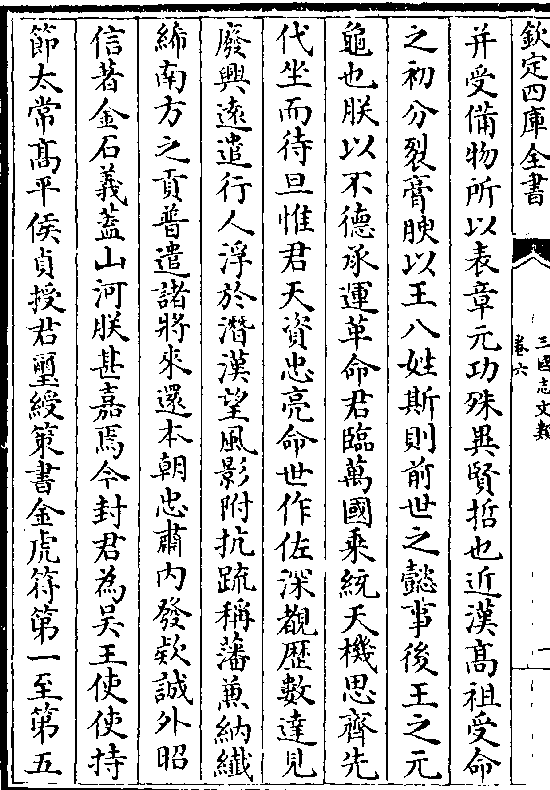 欽定四庫全書
三國志文類
卷六
一
并受備物所以表章元功殊異賢哲也近漢髙祖受命
之初分裂膏腴以王八姓斯則前世之懿事後王之元
龜也朕以不德承運革命君臨萬國乘統天機思齊先
代坐而待旦惟君天資忠亮命世作佐深覩歴數達見
廢興逺遣行人浮於潛漢望風影附抗疏稱藩兼納纖
絺南方之貢普遣諸將來還本朝忠肅内發欵誠外昭
信著金石義蓋山河朕甚嘉焉今封君為吳王使使持
節太常髙平侯貞授君璽綬策書金虎符第一至第五